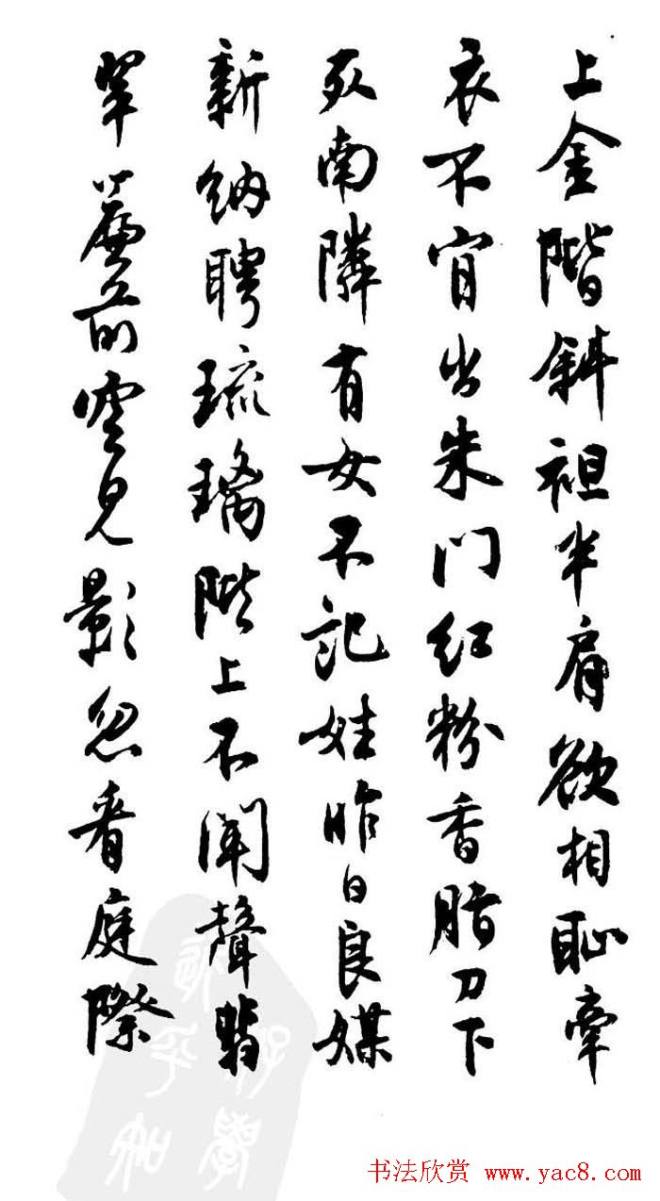 上金階斜袒半肩欲相恥牽
衣不肯出朱门红粉香脂刀下
死南隣有女不記姓昨日良媒
新納聘琉璃階上不聞聲翡
翠簾前空見影忽看庭際
书法欣赏 www.yac8.com